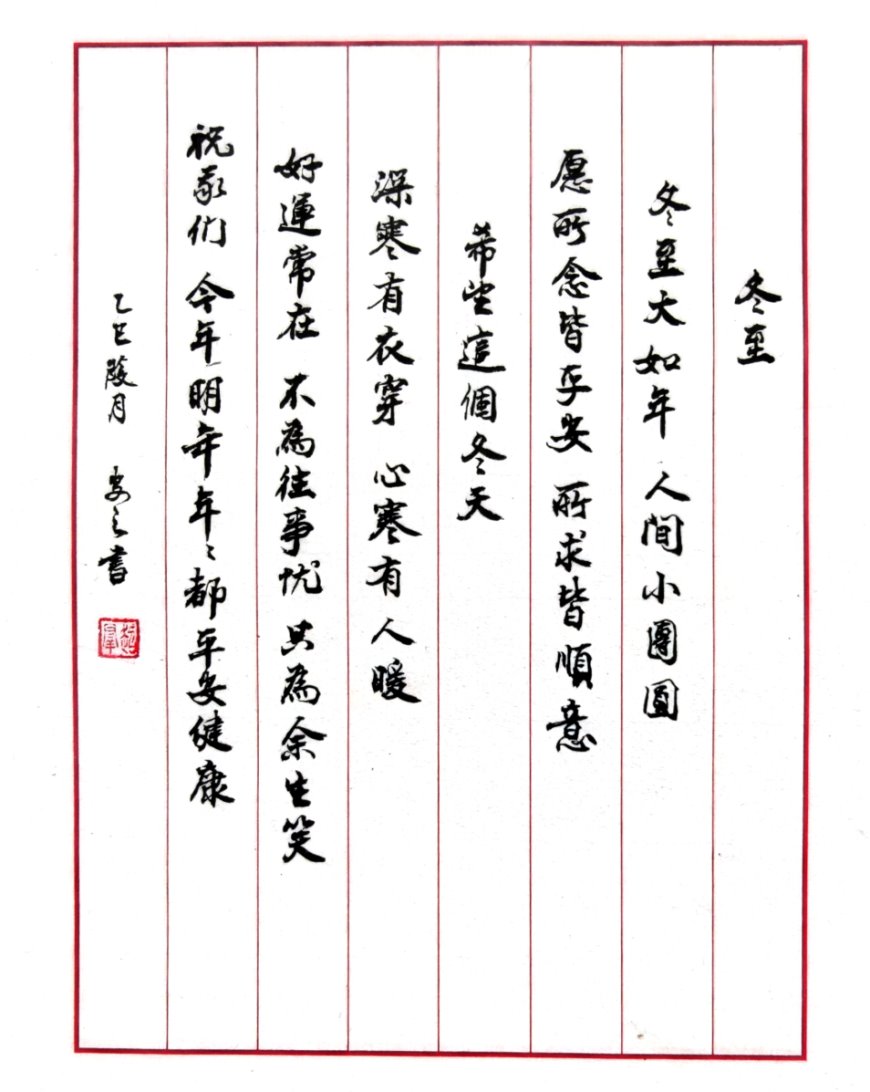 冬至
冬至大如年 人间小團圓
愿所念皆平安 所求皆順意
希望這個冬天
深寒有衣穿 心寒有人暖
好運常在 不為往事忧 只為余生笑
祝家们 今年明年年々都平安健康
乙巳葭月 安之書